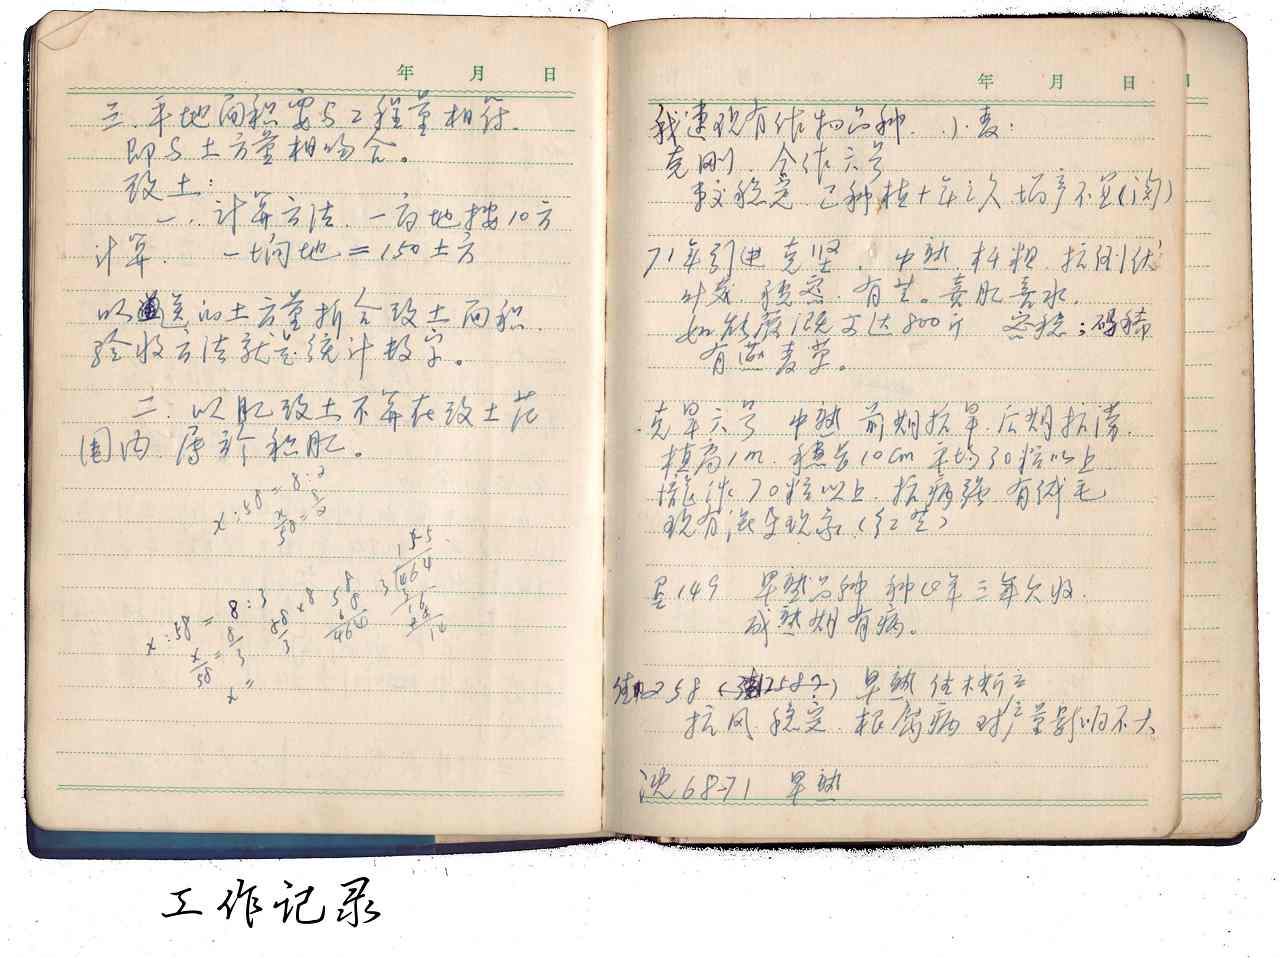 年 月 日
三、平地面积要与工程量相符.
即与土方量相吻合。
改土:
一、计算方法. 一亩地按10方
计算. 一垧地=150土方
以通过的土方量折合改土面积.
验收方法就是统计数字。
二. 以肥改土不算在改土范
围内. 属于积肥。
x:58=8:3
x/58=8/3
x:58=8:3
x/58=8/3
x=
58×8/3
58
8
464
155
3 464
3
16
15
14
年 月 日
我连现有作物品种. 小麦:
克刚. 合作六号
较稳定. 已种植十年之久 垧产不宜
71年引进克坚. 中熟 杆粗. 抗倒伏
叶茂 穗密. 有芒。喜肥喜水.
800斤 密穗;码稀
有燕麦草。
克旱六号 中熟 前期抗旱.后期抗涝.
植高1m. 穗长10cm 平均30粒以上
70粒以上. 抗病强 有绒毛
现有混杂现象(红芒)
149 早熟品种 种四年三年欠收.
成熟期有病。
258 早熟 佳木斯产
抗风. 稳定. 根腐病对产量影响不大
沈68-71 早熟
工作记录